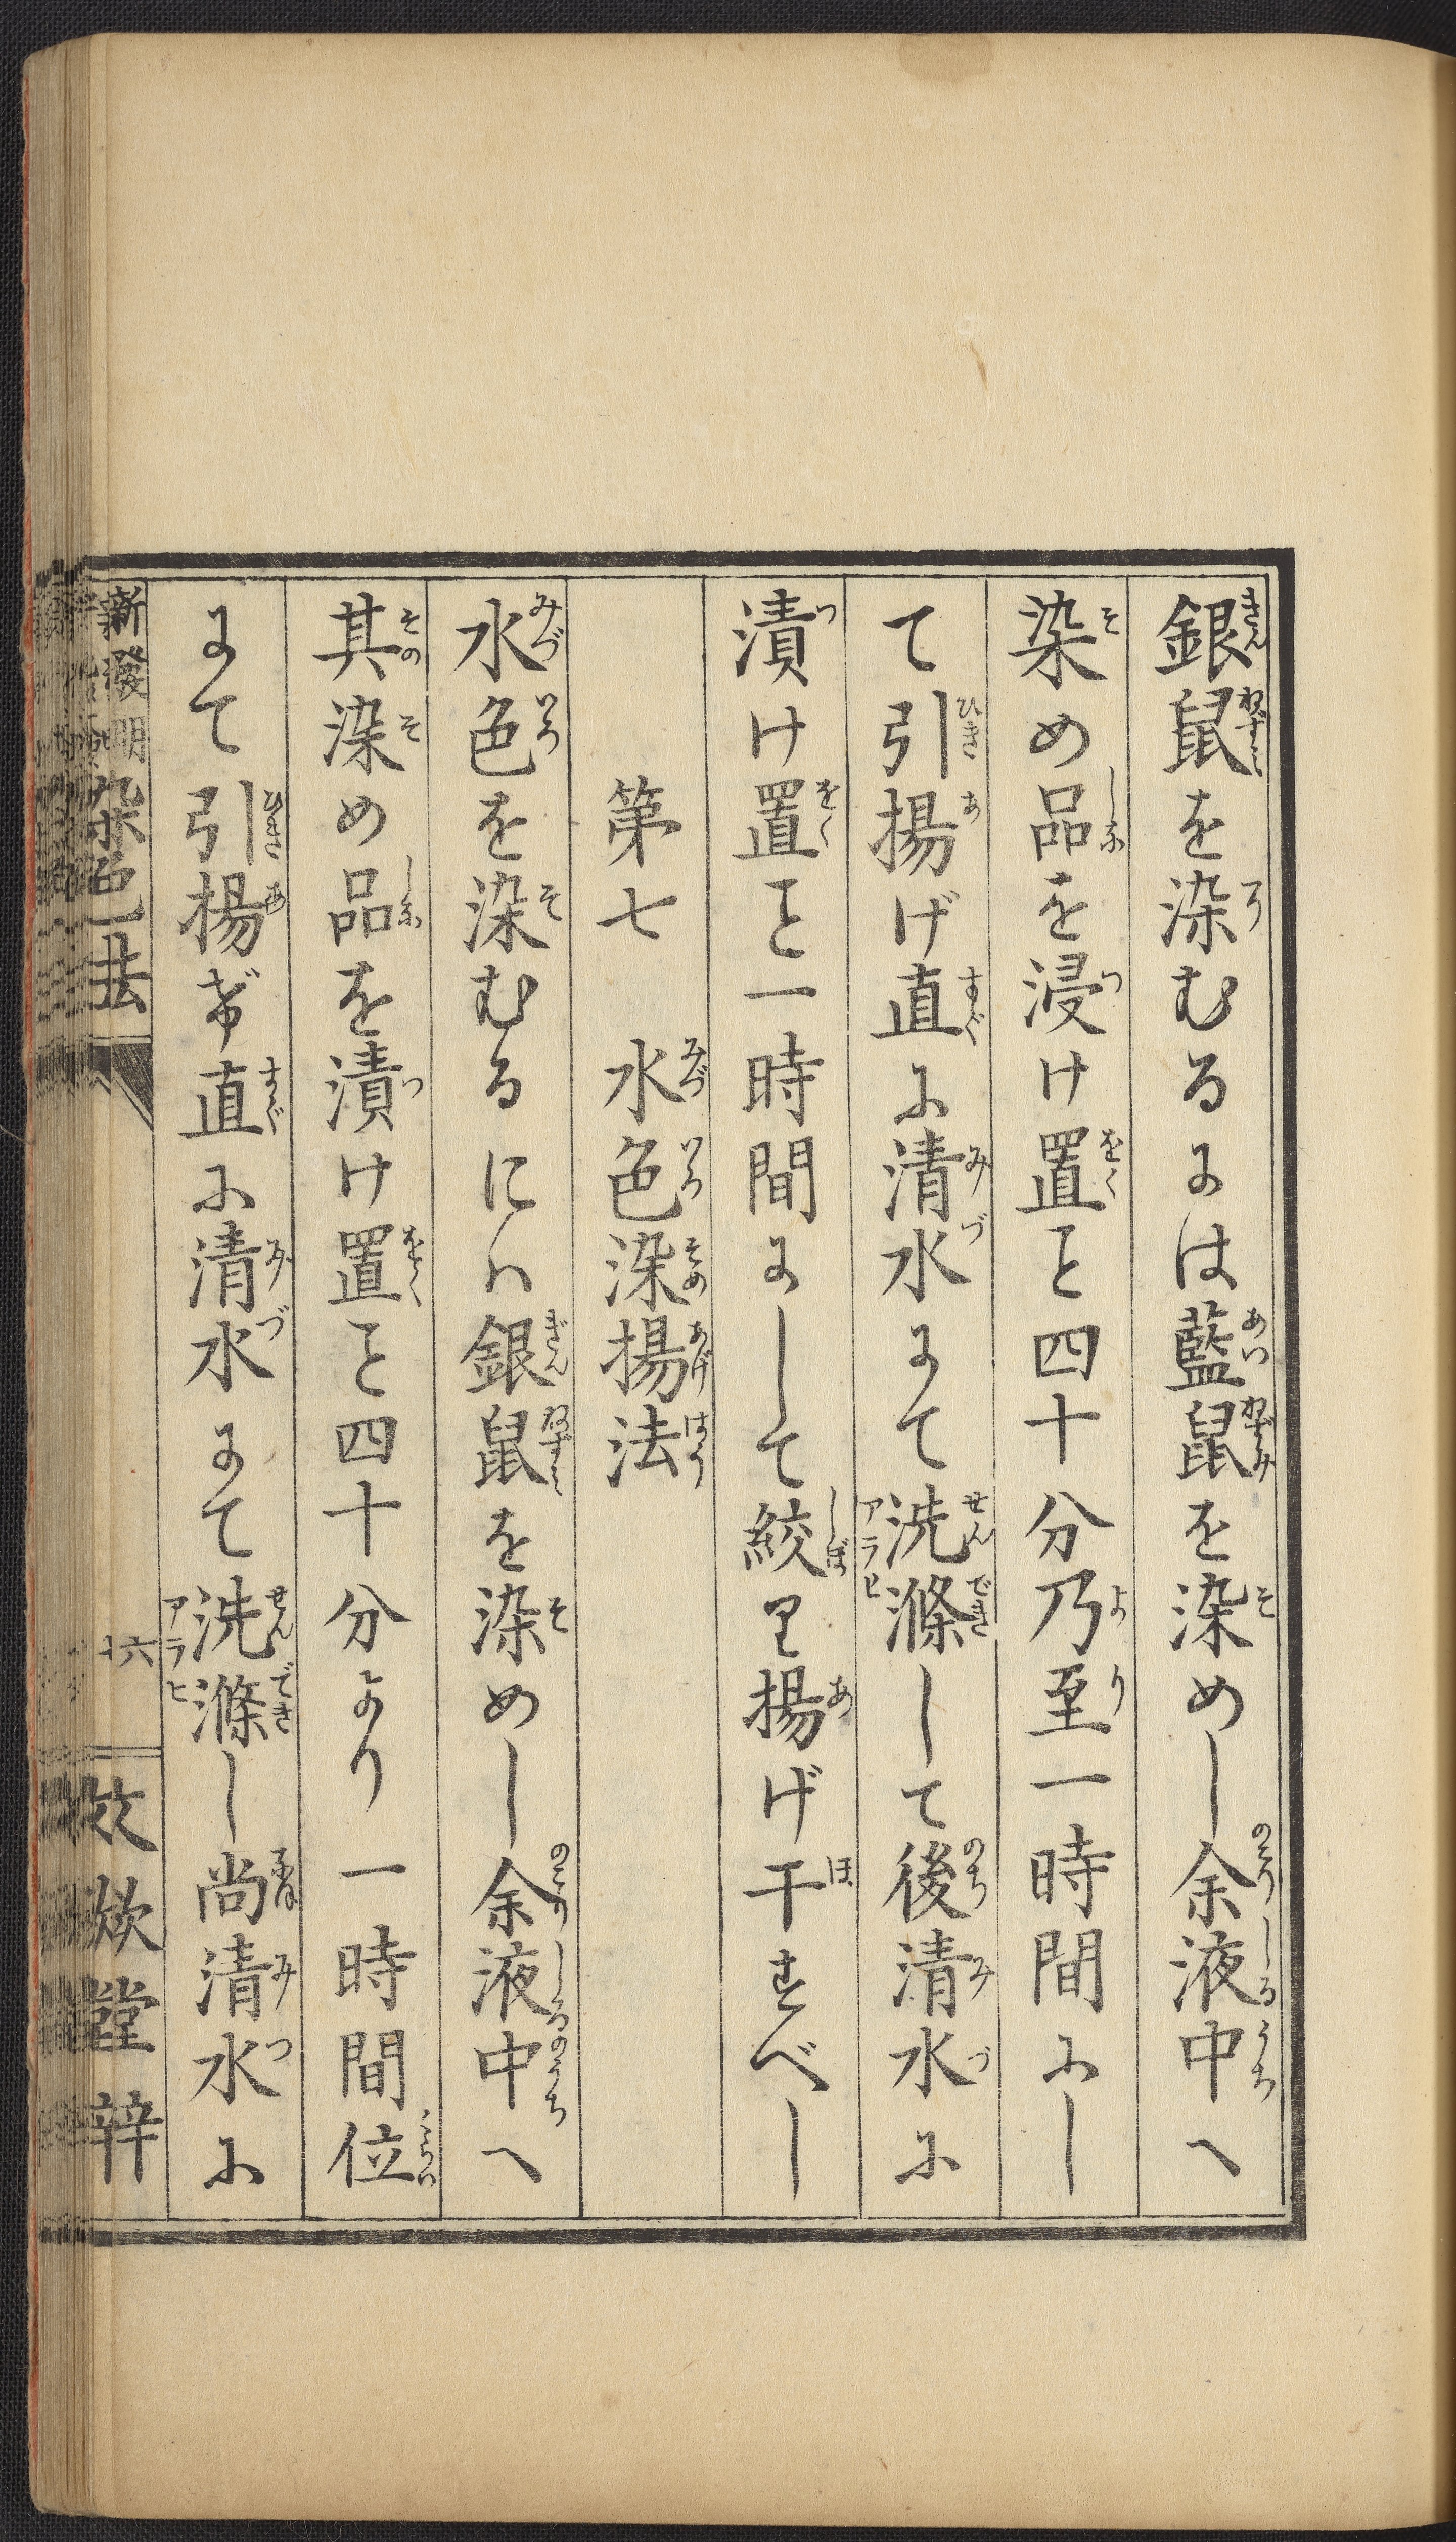 銀鼠を染むるには藍鼠を染めし余液中へ
染め品を浸け置こと四十分乃至一時間にし
て引揚げ直に清水にて洗滌して後清水に
漬け置こと一時間にして絞り揚げ干すべし
第七 水色染揚法
水色を染むるにハ銀鼠を染めし余液中へ
其染め品を漬け置こと四十分より一時間位
にて引揚げ直に清水にて洗滌し尚清水に
新發明染色法 十六